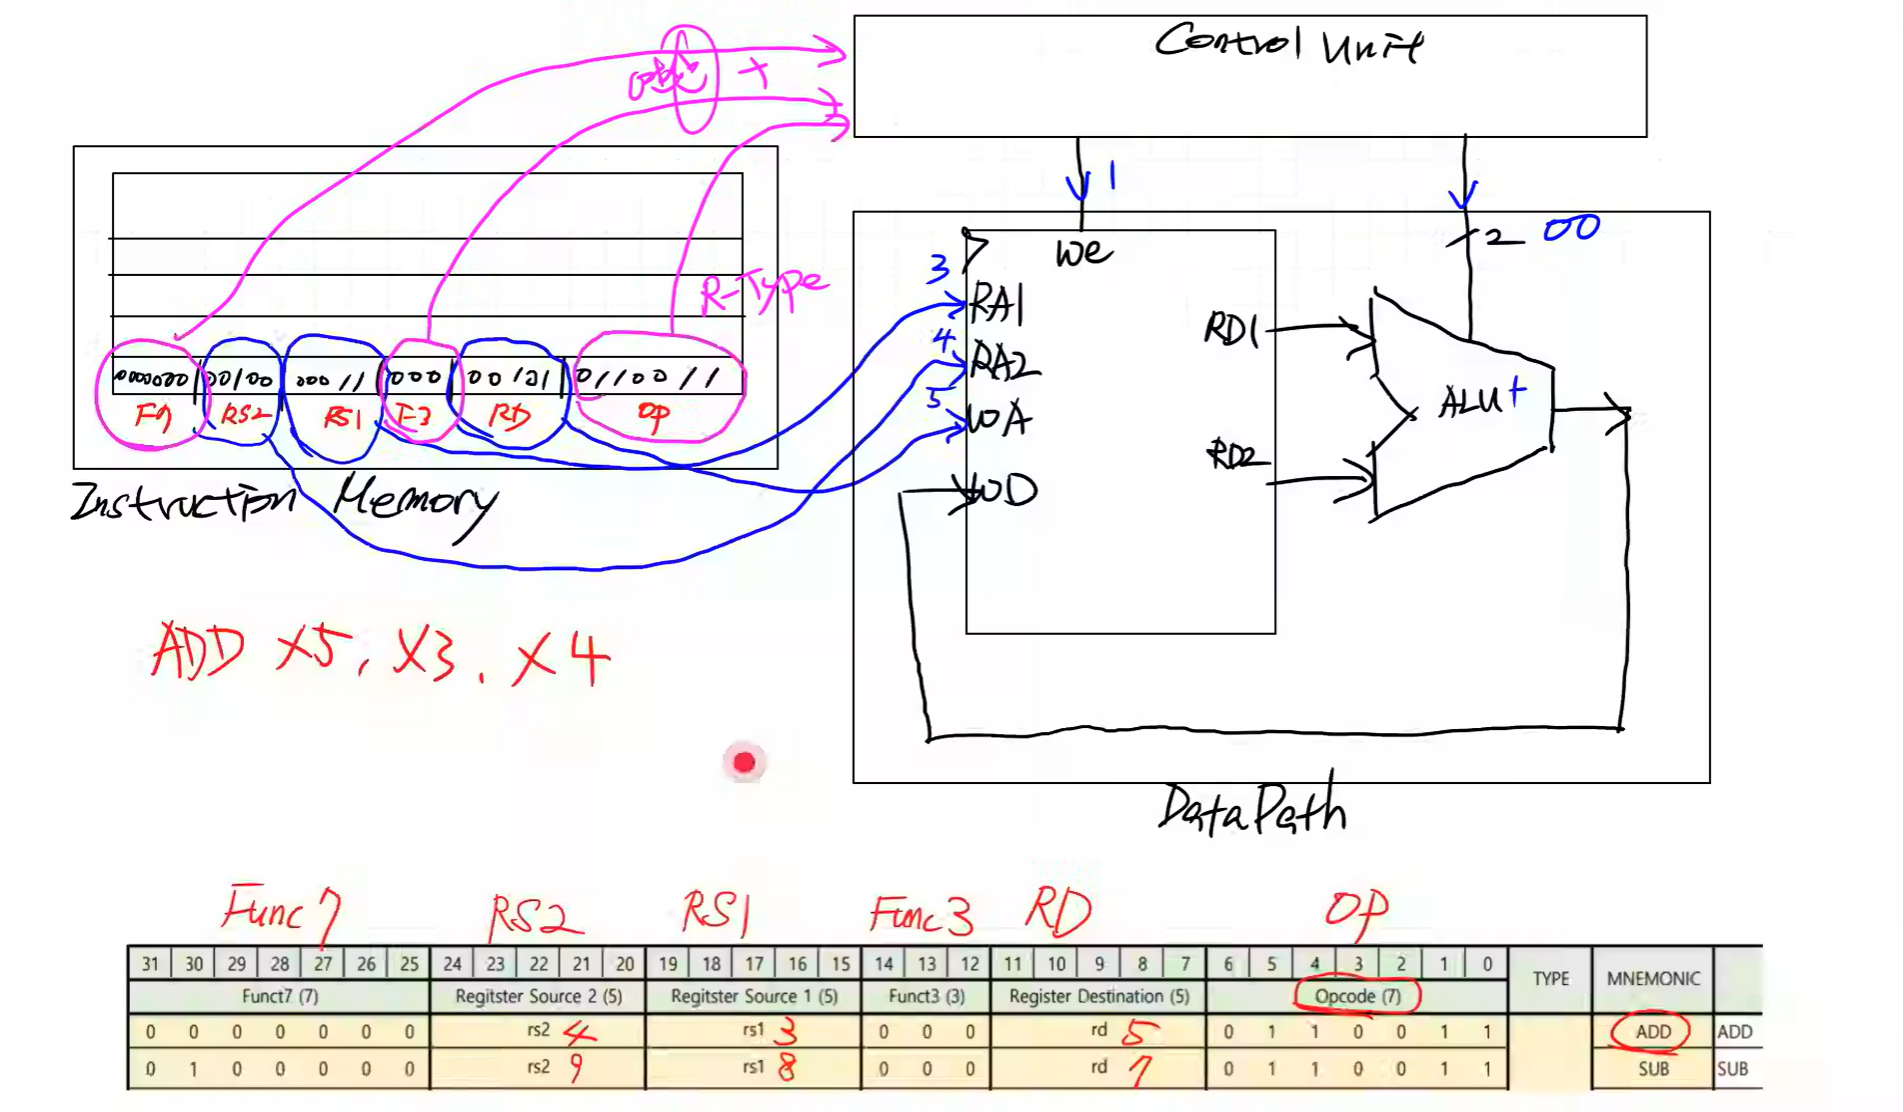 Control Unit
+
1
2 00
we
3
R-Type
RA1
4
RA2
5
WA
WD
RD1
RD2
ALU +
0000000 00100 00011 000 00101 0110011
F7 RS2 RS1 F3 RD OP
Instruction Memory
ADD X5, X3, X4
DataPath
Func7 RS2 RS1 Func3 RD OP
31 30 29 28 27 26 25 24 23 22 21 20 19 18 17 16 15 14 13 12 11 10 9 8 7 6 5 4 3 2 1 0 TYPE MNEMONIC
Funct7 (7) Regitster Source 2 (5) Regitster Source 1 (5) Funct3 (3) Register Destination (5) Opcode (7)
0 0 0 0 0 0 0 rs2 4 rs1 3 0 0 0 rd 5 0 1 1 0 0 1 1 ADD ADD
0 1 0 0 0 0 0 rs2 9 rs1 8 0 0 0 rd 7 0 1 1 0 0 1 1 SUB SUB